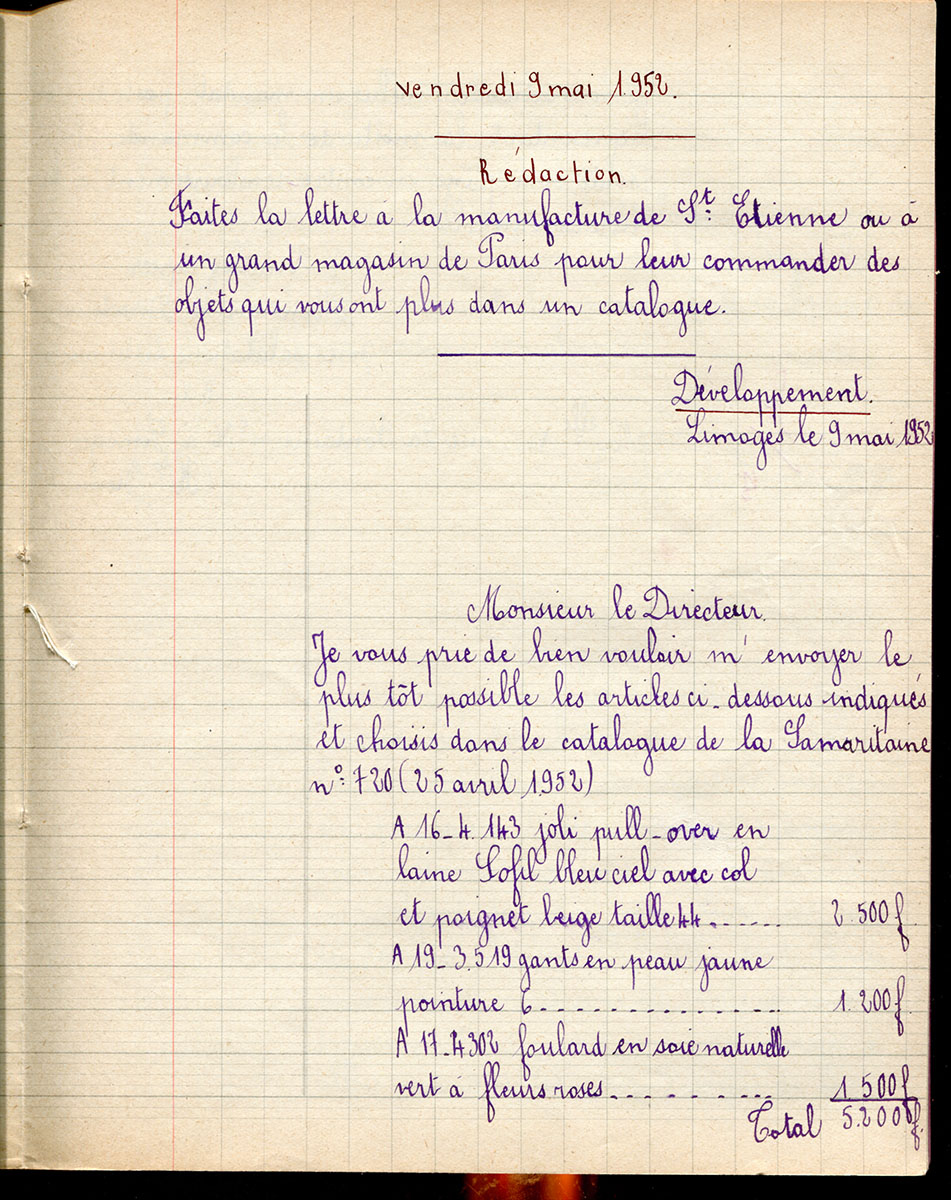 Vendredi 9 mai 1952.
Rédaction.
Faites la lettre à la manufacture de St. Etienne ou à
un grand magasin de Paris pour leur commander des
objets qui vous ont plus dans un catalogue.
Développement.
Limoges le 9 mai 1952
Monsieur le Directeur.
Je vous prie de bien vouloir m'envoyer le
plus tôt possible les articles ci-dessous indiqués
et choisis dans le catalogue de la Samaritaine
n° 720 (25 avril 1952)
A 16-4.143 joli pull-over en
laine Sofil bleu ciel avec col
et poignet beige taille 44....... 2.500f
A 19-3.519 gants en peau jaune
pointure 6.............. 1.200f
A 17-4302 foulard en soie naturelle
vert à fleurs roses......... 1500f
Total 5.200f.